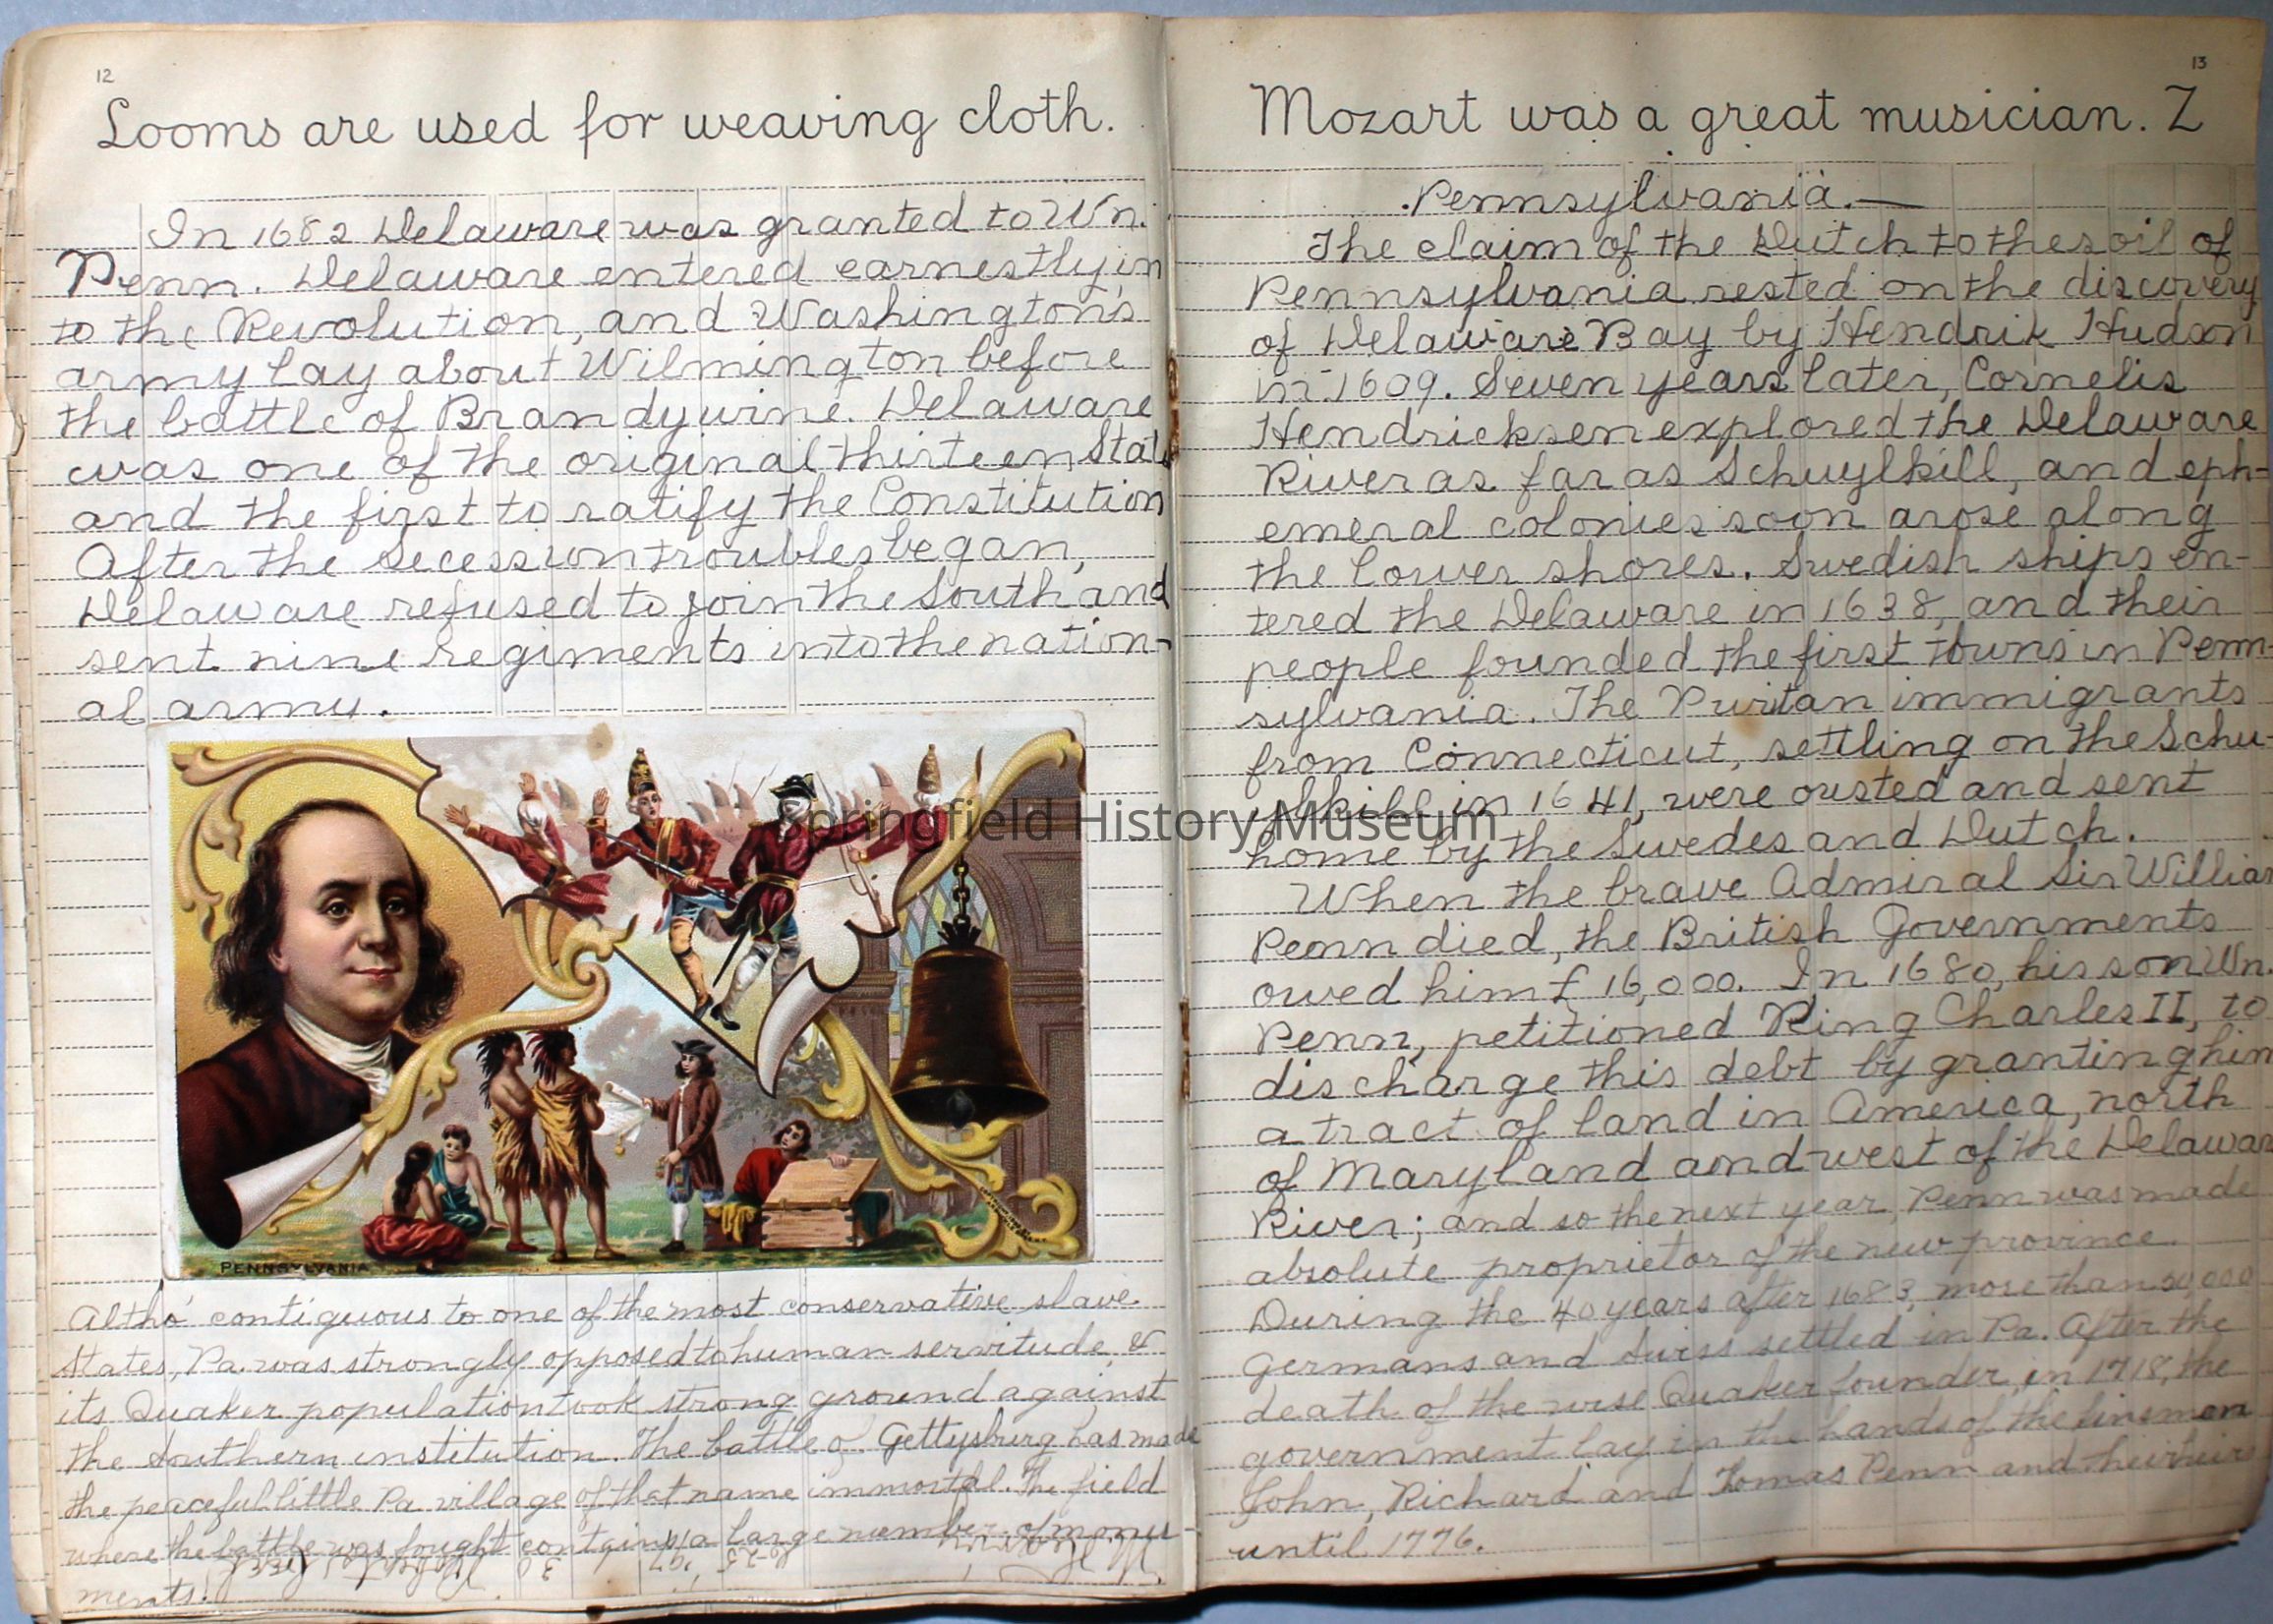 12
Looms are used for weaving cloth.
In 1682 Delaware was granted to Wn.
Penn. Delaware entered earnestly in
to the Revolution, and Washington's
army lay about Wilmington before
the battle of Brandywine. Delaware
was one of the original thirteen Stat
and the first to ratify the Constitution
After the Secession troubles began,
Delaware refused to join the South and
sent nine regiments into the nation-
al army.
PENNSYLVANIA
Altho' contiguous to one of the most conservative slave
States, Pa. was strongly opposed to human servitude, &
its Quaker population took strong ground against
the Southern institution. The battle of Gettysburg has made
the peaceful little Pa. village of that name immortal. The field
where the battle was fought contains a large number of monu-
ments.
13
Mozart was a great musician. Z
Pennsylvania.—
The claim of the Dutch to the soil of
Pennsylvania rested on the discovery
of Delaware Bay by Hendrik Hudson
in 1609. Seven years later, Cornelis
Hendricksen explored the Delaware
River as far as Schuylkill, and eph-
emeral colonies soon arose along
the lower shores. Swedish ships en-
tered the Delaware in 1638, and their
people founded the first towns in Penn-
sylvania. The Puritan immigrants
from Connecticut, settling on the Schu-
ylkill in 1641, were ousted and sent
home by the Swedes and Dutch.
When the brave Admiral Sir William
Penn died, the British Governments
owed him £ 16,000. In 1680, his son Wn.
Penn, petitioned King Charles II, to
discharge this debt by granting him
a tract of land in America, north
of Maryland and west of the Delawar
River; and so the next year, Penn was made
absolute proprietor of the new province.
During the 40 years after 1683, more than 50,000
Germans and Swiss settled in Pa. After the
death of the wise Quaker founder, in 1718, the
government lay in the hands of the kinsmen
John, Richard and Tomas Penn and their heirs
until 1776.
Springfield History Museum